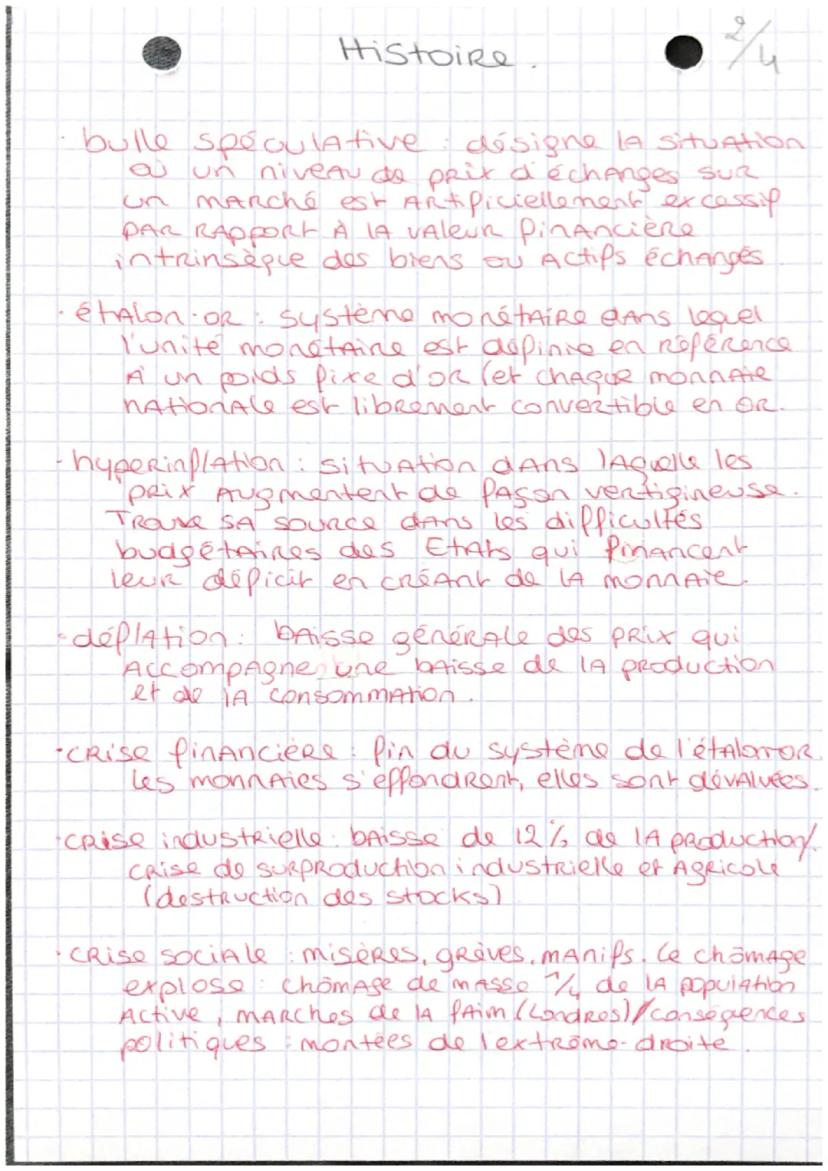 Histoire.
2/4
· bulle spéculative : désigne la situation
où un niveau de prix d'échanges sur
un marché est artificiellement excessif
par rapport à la valeur financière
intrinsèque des biens ou actifs échangés
· étalon-or : système monétaire dans lequel
l'unité monétaire est définie en référence
à un poids fixe d'or (et chaque monnaie
nationale est librement convertible en or.
· hyperinflation : situation dans laquelle les
prix augmentent de façon vertigineuse.
Trouve sa source dans les difficultés
budgétaires des Etats qui financent
leur déficit en créant de la monnaie.
· déflation : baisse générale des prix qui
accompagne une baisse de la production
et de la consommation.
· crise financière : fin du système de l'étalon or
les monnaies s'effondrent, elles sont dévaluées.
· crise industrielle : baisse de 12% de la production/
crise de surproduction industrielle et agricole
(destruction des stocks)
· crise sociale : misères, grèves, manifs. Le chômage
explose : chômage de masse 1/4 de la population
active, marches de la faim (Londres)/conséquences
politiques : montées de l'extrême-droite.